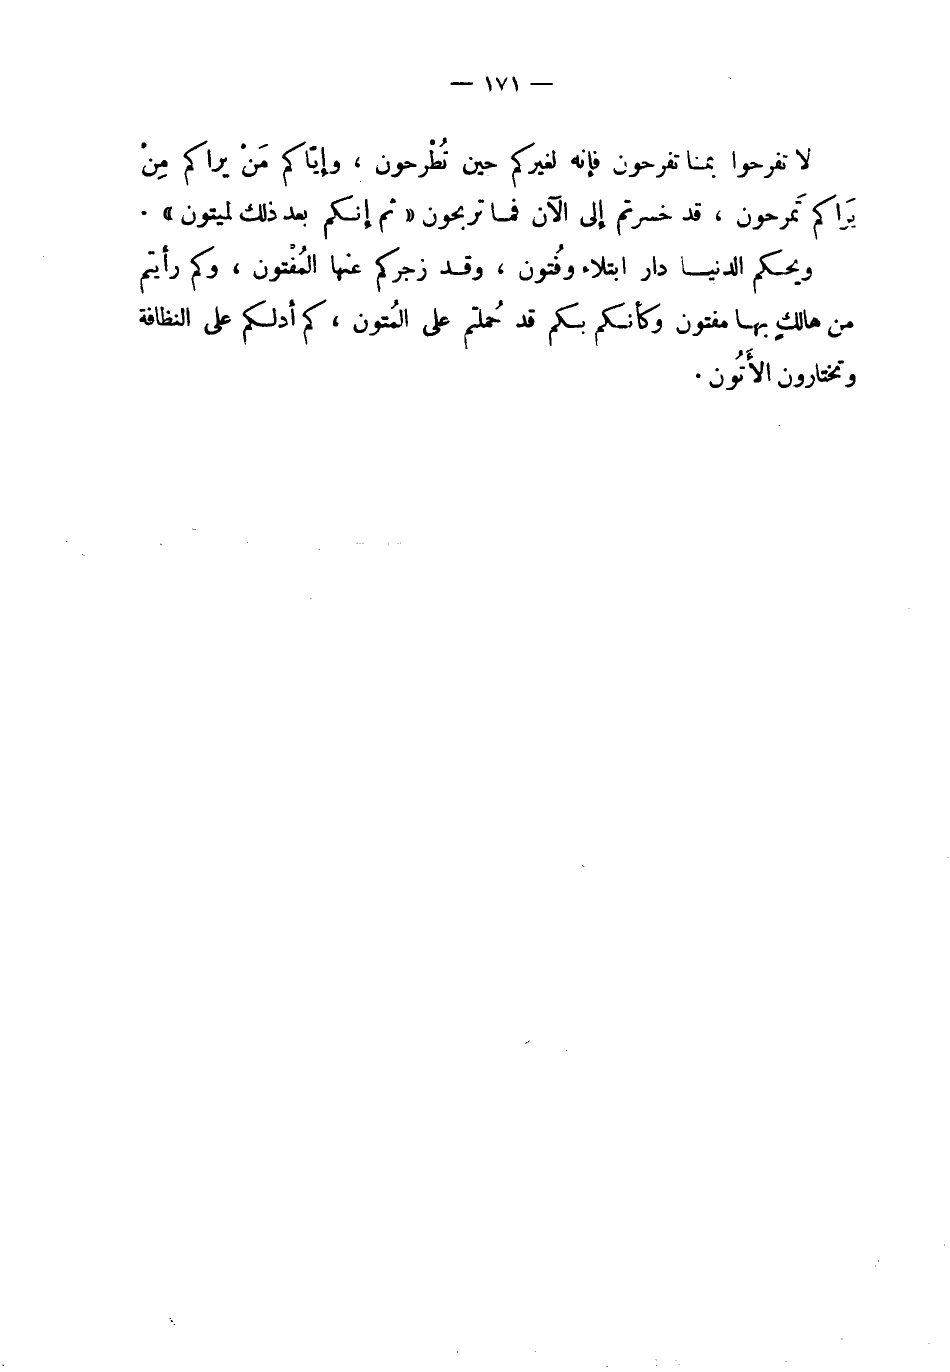 — ١٧١ —
لا تفرحوا بمنا تفرحون فإنه لغيركم حين تُطْرحون ، وإيّاكم مَنْ يراكم مِنْ
يَراكم تَمرحون ، قد خسرتم إلى الآن فما تربحون « ثم إنكم بعد ذلك لميتون » .
ويحكم الدنيا دار ابتلاء وفُتون ، وقد زجركم عنها المُفْتون ، وكم رأيتم
من هالكٍ بها مفتون وكأنكم بكم قد حُملتم على المُتون ، كم أدلكم على النظافة
وتختارون الأَتُون .